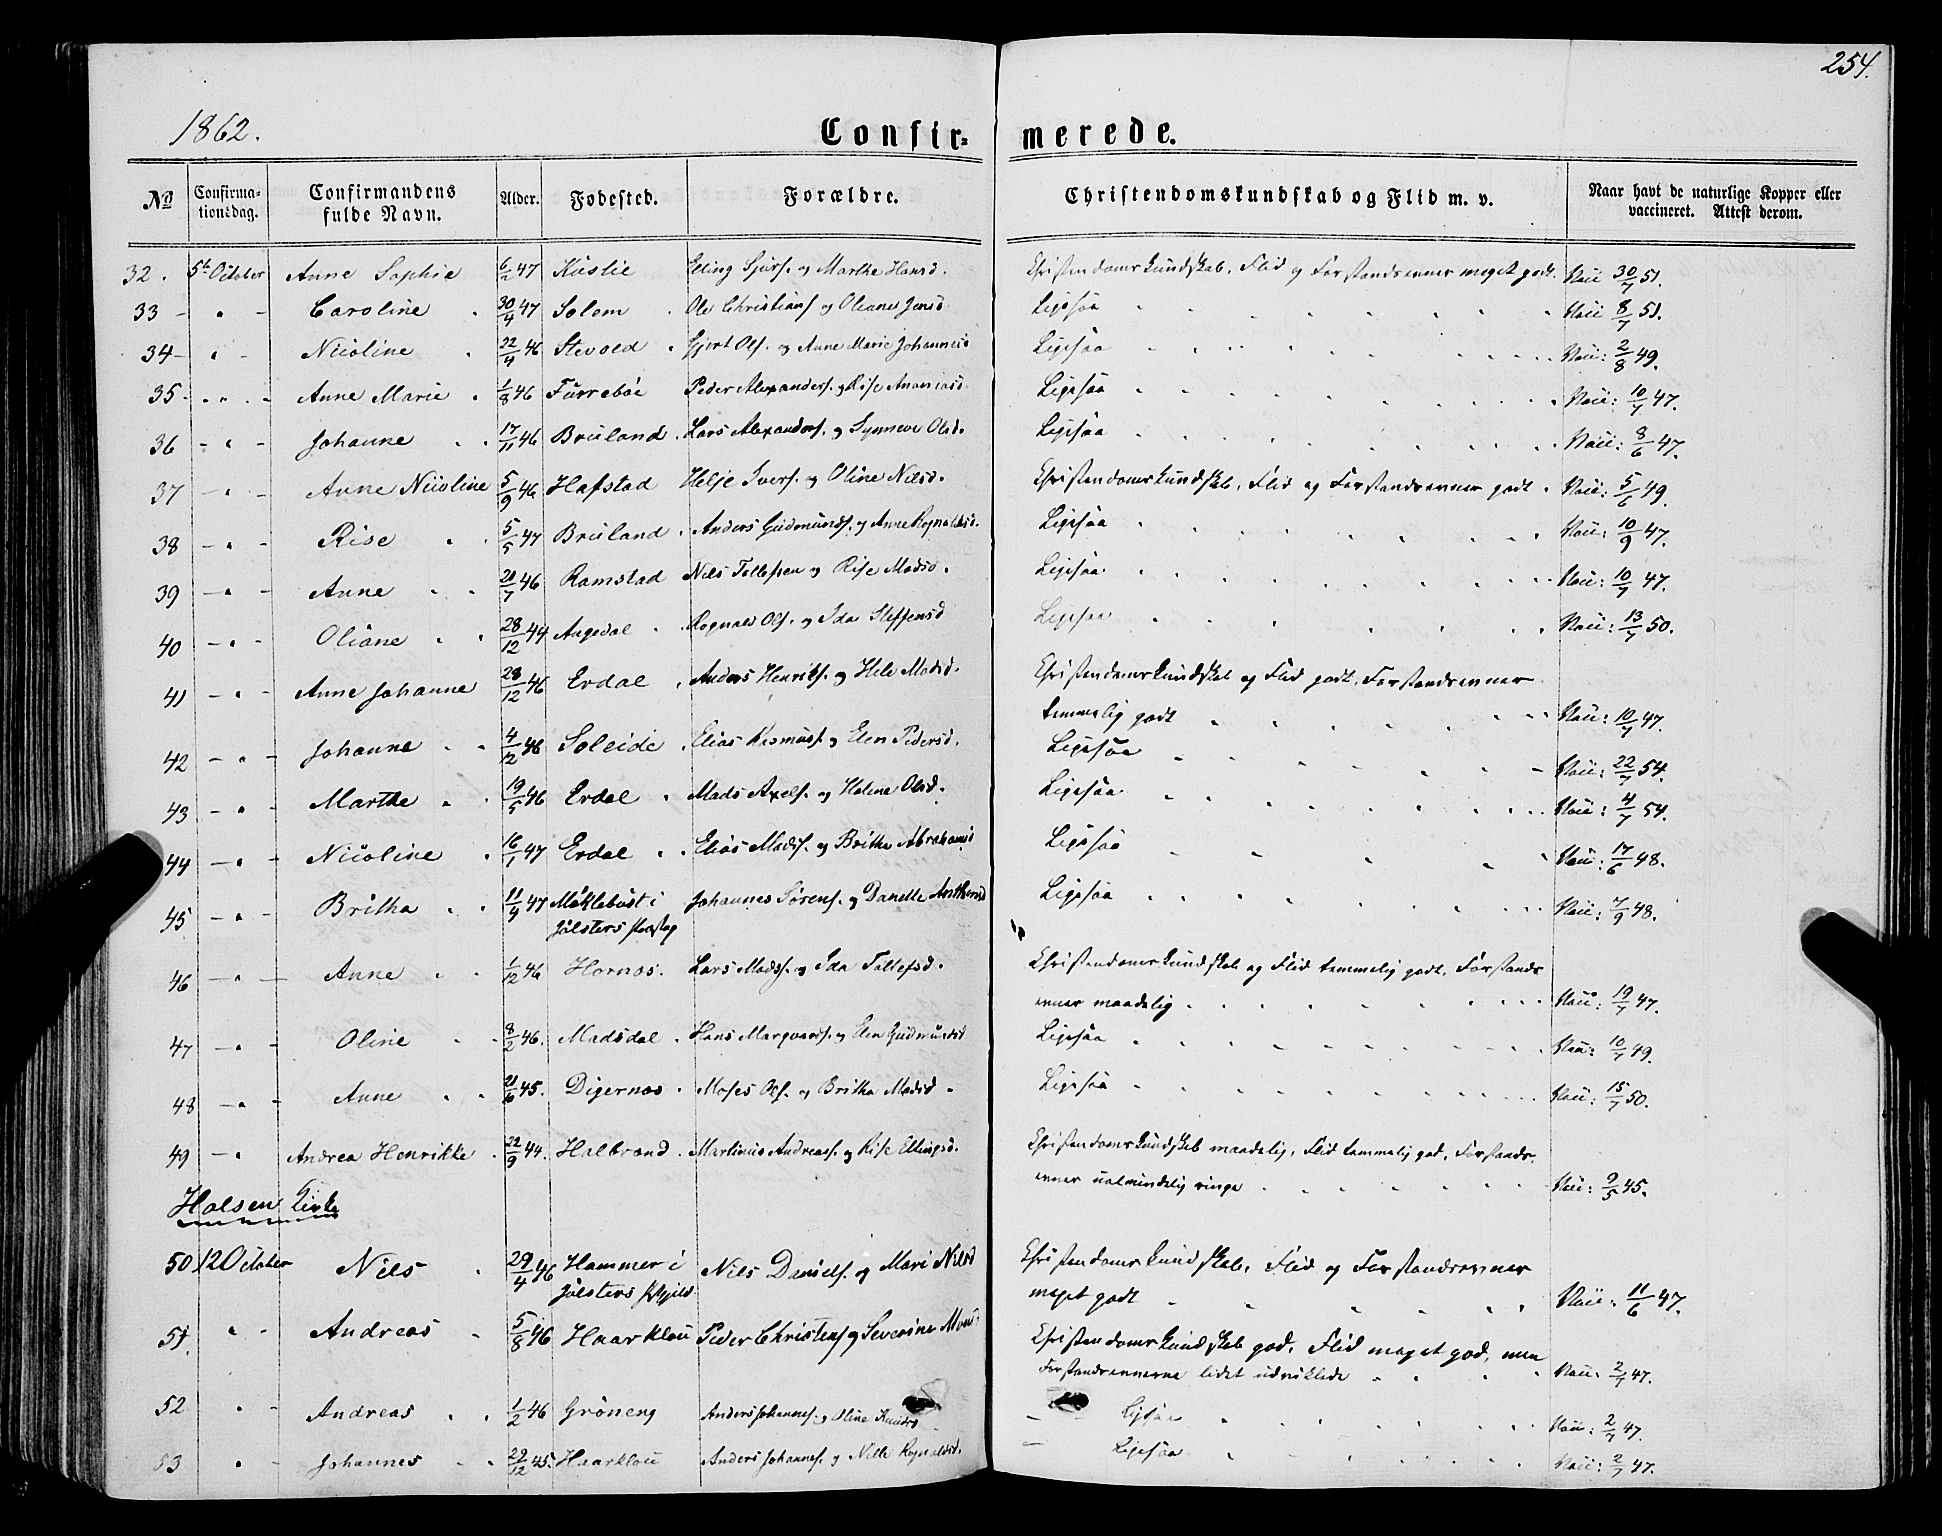 254.
1862.
Confir= merede.
No Confirma-tionsdag. Confirmandens fulde Navn. Alder. Fødested. Forældre. Christendomskundskab og Flid m. v. Naar havt de naturlige Kopper eller vaccineret. Attest derom.
32. 5te October Anne Sophie 6/2 47 Elling Sjurs. og Marthe Hansd. Christendomskundskab, Flid og Forstandsevner meget godt. Vacc 30/7 51.
33 - " - Caroline 30/4 47 Solem Ole Christians. og Oliane Jensd. Ligesaa Vacc 8/7 51.
34 - " - Nicoline 22/4 46 Stevold Gjert Ols. og Anne Marie Johannesd Ligesaa Vacc: 2/8 49.
35 - " - Anne Marie 1/8 46 Furrebøe Peder Alexanders. og Rise Ananiasd. Ligesaa Vacc: 10/7 47.
36 - " - Johanne 17/11 46 Bruland Lars Alexanders. og Synneve Olsd. Ligesaa Vacc: 8/6 47.
37 - " - Anne Nicoline 5/9 46 Hafstad Helje Ivers. og Oline Nilsd. Christendomskundskab, Flid og Forstandsevner godt. Vacc: 5/6 49.
38 - " - Rise 5/5 47 Bruland Anders Gudmunds. og Anne Rognaldsd. Ligesaa Vacc: 10/9 47.
39 - " - Anne 21/7 46 Ramstad Nils Tollefsen og Rise Madsd. Ligesaa Vacc: 10/7 47.
40 - " - Oliane 28/12 44 Angedal Rognald Ols. og Ida Steffensd Ligesaa Vacc: 13/7 50.
41 - " - Anne Johanne 28/12 46 Erdal Anders Henriks. og Hele Madsd. Christendomskundskab og Flid godt, Forstandsevner
temmelig godt Vacc: 10/7 47.
42 - " - Johanne 4/12 46 Soleide Elias Rasmuss. og Elen Pedersd. Ligesaa Vacc: 22/7 54.
43 - " - Marthe 19/5 46 Erdal Mads Axels. og Heline Olsd. Ligesaa Vacc: 4/7 54.
44 - " - Nicoline 16/1 47 Erdal Elias Mads. og Britha Abrahamsd Ligesaa Vacc: 17/6 48.
45 - " - Britha 11/4 47 Møklebust i Johannes Sørens. og Danelle Anthonsd Ligesaa Vacc: 7/9 48.
Jølsters Præsteg
46 - " - Anne 1/12 46 Hornes. Lars Madss. og Ida Tollefsd. Christendomskundskab og Flid temmelig godt, Forstands
evner maadelig Vacc: 19/7 47.
47 - " - Oline 8/2 46. Madsdal Hans Marqvards. og Elen Gudmundsd Ligesaa Vacc: 10/7 49.
48 - " - Anne 21/6 45. Digernes Moses Ols. og Britha Madsd. Ligesaa Vacc: 15/7 50.
49 - " Andrea Henrikke 22/9 44. Halbrand Martinus Andreass. og Rise Ellingsd. Christendomskundskab maadelig, Flid temmelig god, Forstands.
evner ualmindelig ringe Vacc: 9/5 45.
Holsen Kirke
50 12 October Nils 29/4 46 Hammer i Nils Daniels. og Mari Nilsd Christendomskundskab, Flid og Forstandsevner
Jølsters Prgjeld meget godt Vacc: 11/6 47.
51 " - Andreas 5/8 46 Haarklou Peder Christens. og Severine Christendomskundskab god, Flid meget god, men
Forstandsevnerne lidet udviklede Vacc: 2/7 47.
52 " - Andreas 1/2 46 Grøneng Anders Johannes. og Oline Knudsd Ligesaa Vacc: 2/7 47.
53 " - Johannes 29/12 45. Haarklou Anders Johannes. og Nille Rognaldsd. Ligesaa Vacc: 2/7 47.